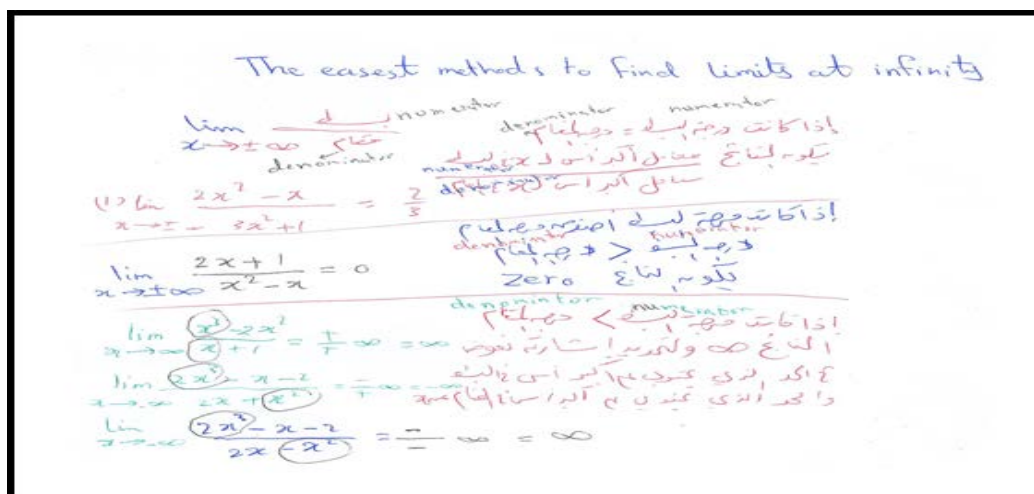 The easest methods to find limits at infinity
lim x→±∞ بسط / مقام numerator
denominator
denominator numerator
إذا كانت درجة البسط = درجة المقام
يكون الناتج معامل أكبر أس لـ x في البسط
numerator
معامل أكبر أس
(1) lim x→±∞ (2x² - x) / (3x² + 1) = 2/3
إذا كانت درجة البسط أصغر من درجة المقام
denomintor numerator
درجة البسط < درجة المقام
يكون الناتج Zero
lim x→±∞ (2x + 1) / (x² - x) = 0
denomintor numerator
إذا كانت درجة البسط > درجة المقام
الناتج ∞ ولتحديد إشارته نعوض
lim x→∞ (x³ - 2x²) / (x + 1) = +/+ ∞ = ∞
في الحد الذي يحتوي على أكبر أس في البسط
والحد الذي يحتوي على أكبر أس في المقام
lim x→-∞ (2x³ - x - 2) / (2x + x²) = -/+ ∞ = -∞
lim x→-∞ (2x³ - x - 2) / (2x - x²) = -/- ∞ = ∞